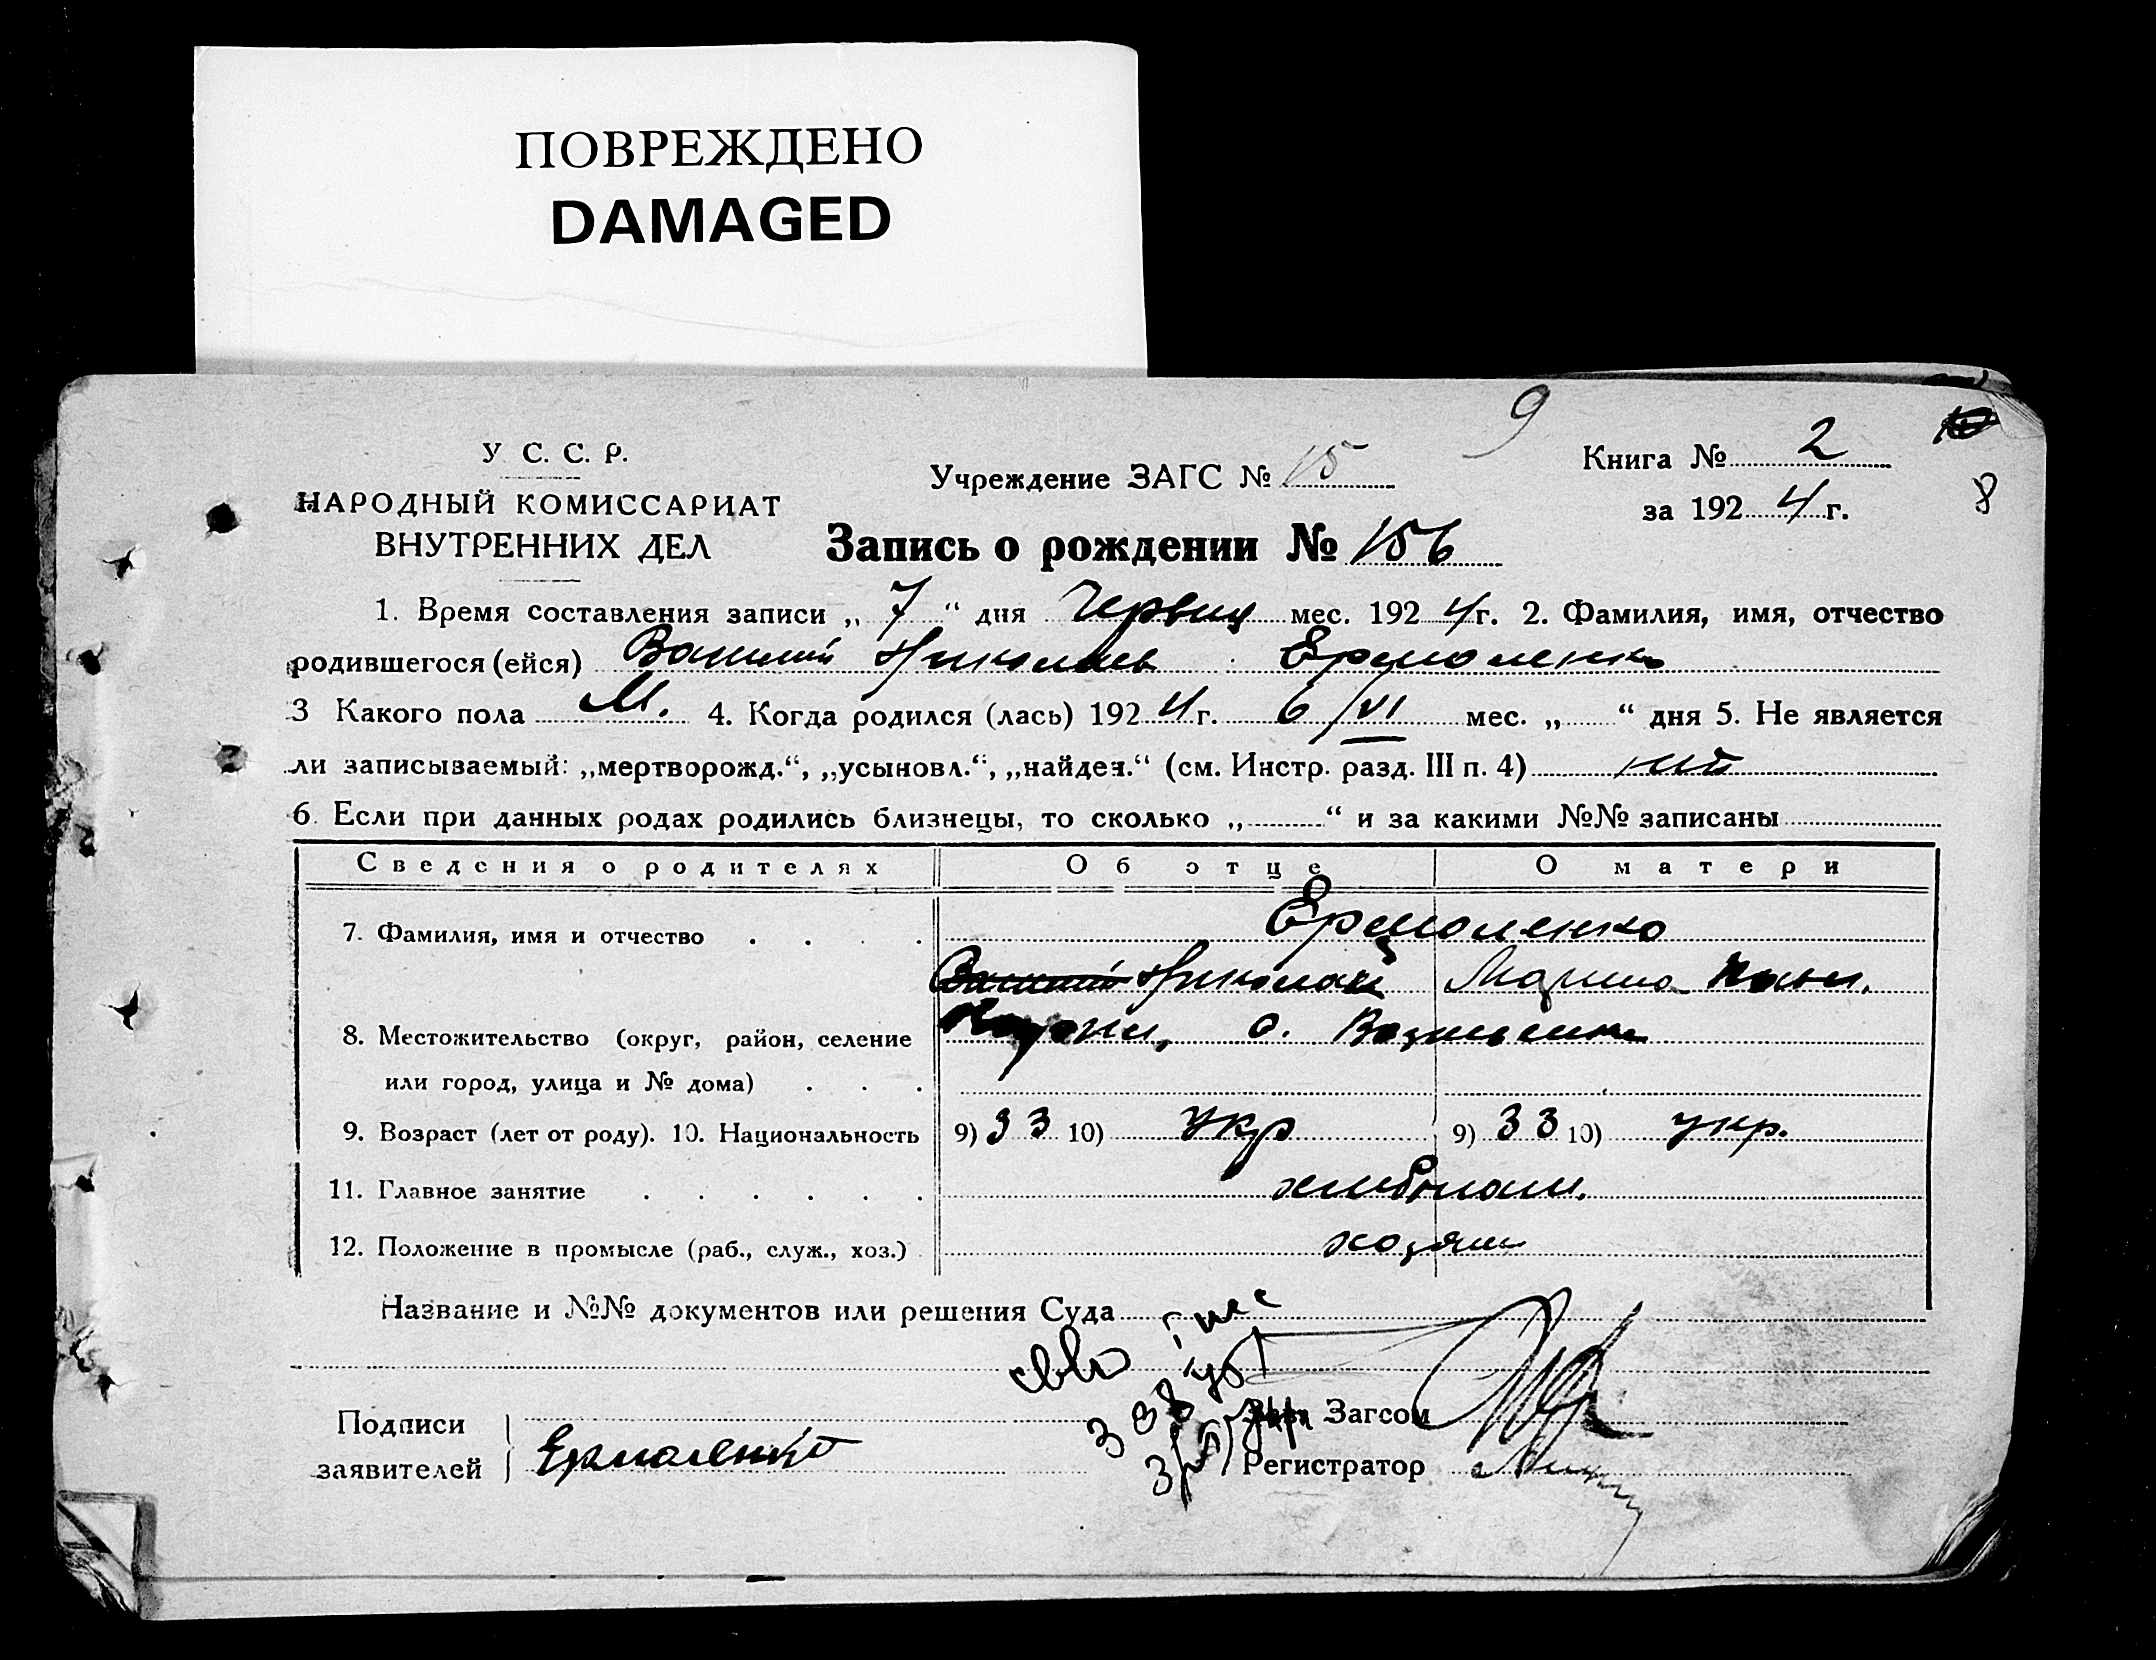 ПОВРЕЖДЕНО
DAMAGED
9
У. С. С. Р.
Учреждение ЗАГС № 15
Книга № 2
НАРОДНЫЙ КОМИССАРИАТ
за 1924 г.
8
ВНУТРЕННИХ ДЕЛ
Запись о рождении № 156
1. Время составления записи „ 7 “ дня Червня мес. 1924 г. 2. Фамилия, имя, отчество
родившегося (ейся) Василий Николаев Ермоленко
3 Какого пола М. 4. Когда родился (лась) 1924 г. 6/VI мес. „ “ дня 5. Не является
ли записываемый: „мертворожд.“, „усыновл.“, „найден.“ (см. Инстр. разд. III п. 4) нет
6. Если при данных родах родились близнецы, то сколько „ “ и за какими №№ записаны
Сведения о родителях Об отце О матери
7. Фамилия, имя и отчество Ермоленко
Василий Николай Марина
8. Местожительство (округ, район, селение с.
или город, улица и № дома)
9. Возраст (лет от роду). 10. Национальность 9) 33 10) Укр 9) 33 10) укр.
11. Главное занятие хлебопаш.
12. Положение в промысле (раб., служ., хоз.) хозяин
Название и №№ документов или решения Суда
Подписи
Загсом
заявителей Ермоленко
Регистратор